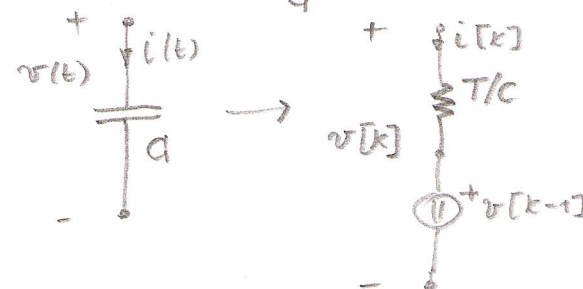 +
i(t)
v(t)
C
-
+
i[k]
T/C
v[k]
+
v[k-1]
-